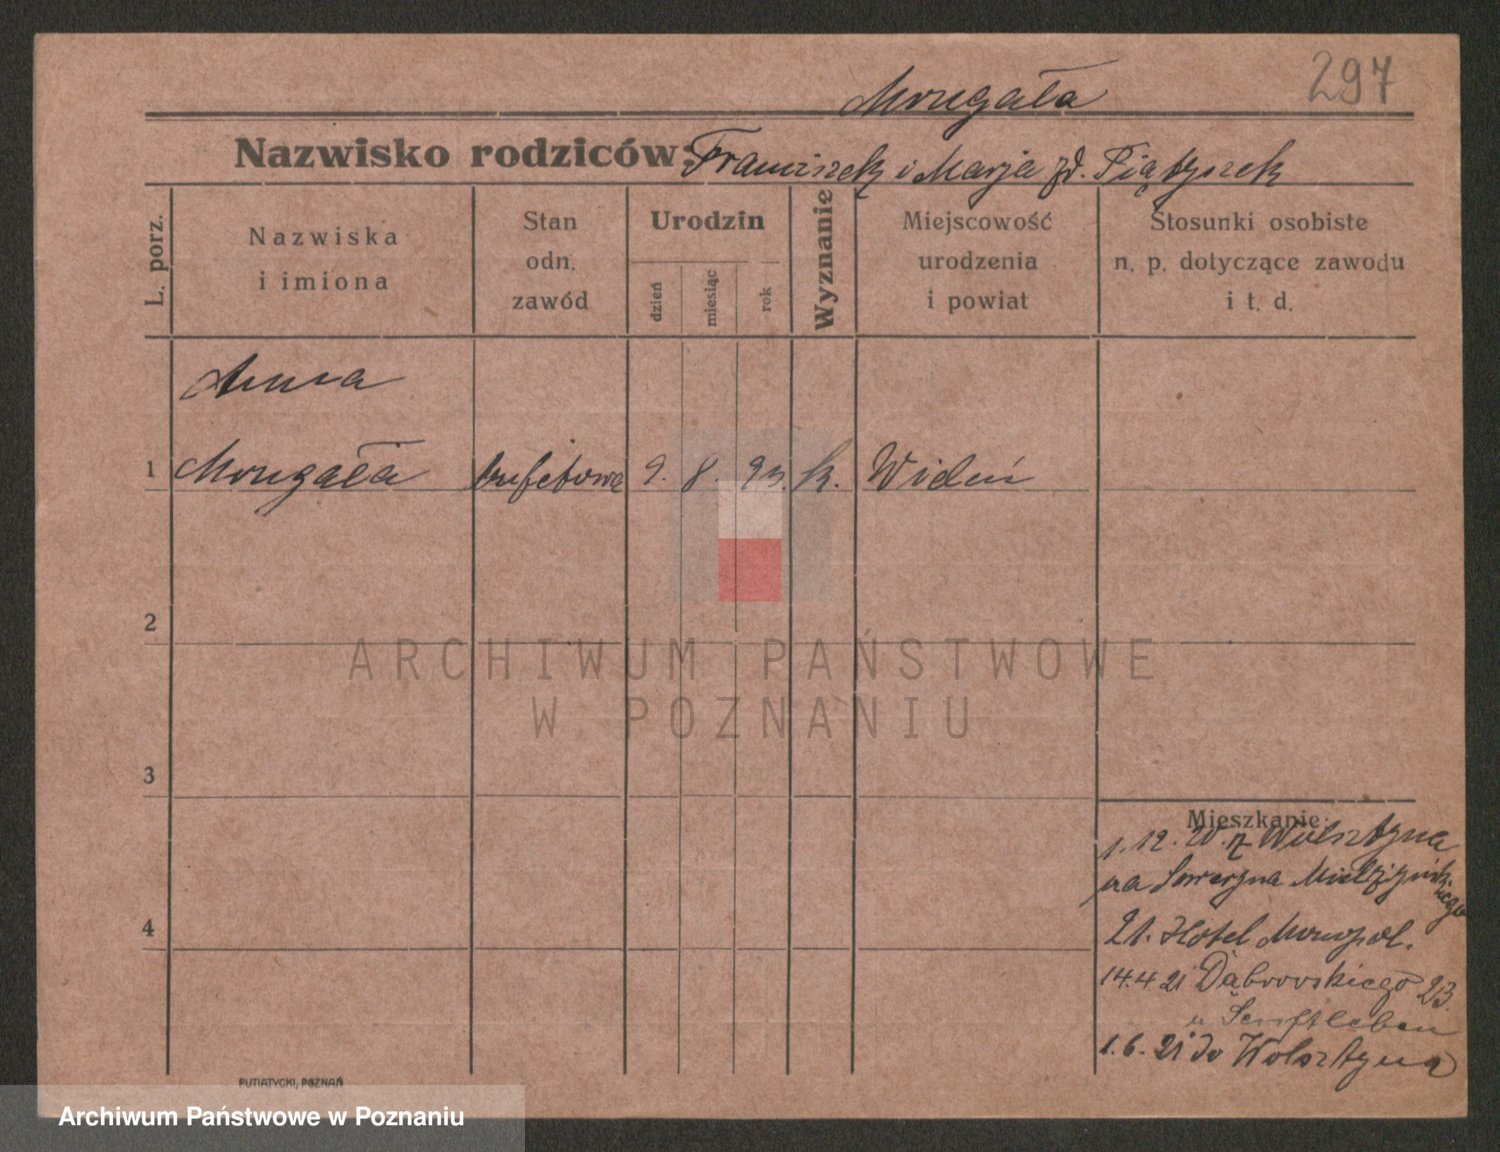 297
Mrugała
Nazwisko rodziców: Franciszek i Marja zd. Piątyszek
L. porz.
Nazwiska
i imiona
Stan
odn.
zawód
Urodzin
dzień
miesiąc
rok
Wyznanie
Miejscowość
urodzenia
i powiat
Stosunki osobiste
n. p. dotyczące zawodu
i t. d.
Anna
1 Mrugała bufetowa 9. 8. 93. k. Wideń
2
3
4
Mieszkanie:
1. 12. 20. z Wolsztyna
na Seweryna Mielżyńskiego
21. Hotel Monopol.
14.4.21 Dąbrowskiego 23.
u Senftleben
1.6.21 do Wolsztyna
PUTIATYCKI, POZNAŃ
ARCHIWUM PAŃSTWOWE
W POZNANIU
Archiwum Państwowe w Poznaniu